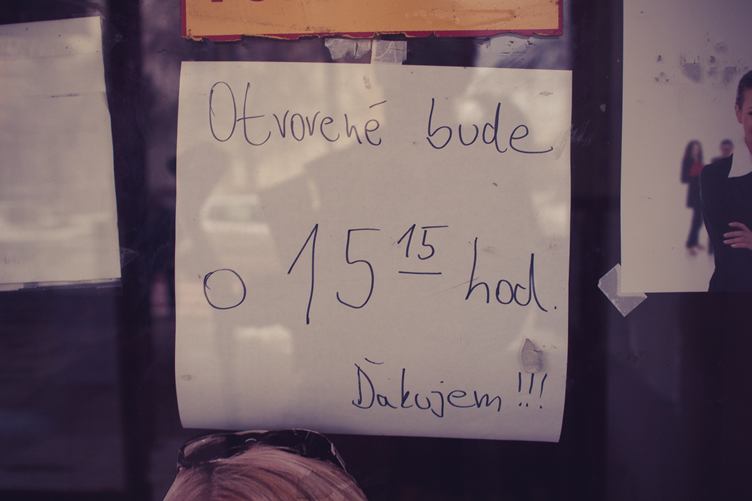 Otvorené bude
o 15 15 hod.
Ďakujem !!!